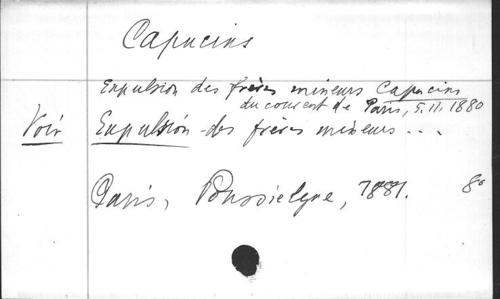 Capucins
Expulsion des frères mineurs Capucins
du couvent de Paris, 5.11.1880
Voir Expulsion des frères mineurs...
Paris, Poussielgue, 1881. 8°